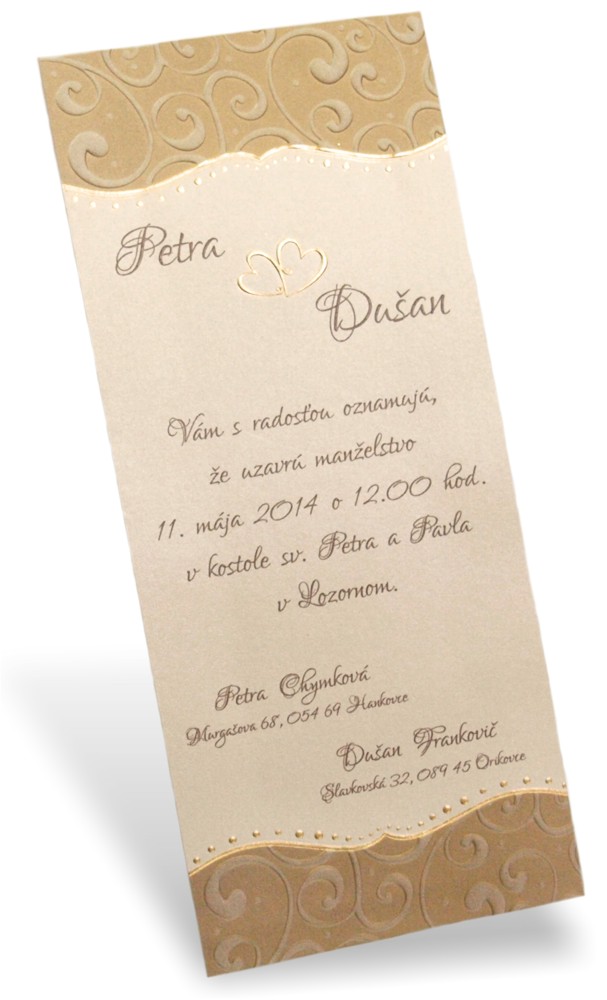 Petra
Dušan
Vám s radosťou oznamujú,
že uzavrú manželstvo
11. mája 2014 o 12.00 hod.
v kostole sv. Petra a Pavla
v Lozornom.
Petra Chymková
Margašova 68, 054 69 Hankovce
Dušan Frankovič
Slavkovská 32, 089 45 Orikovce